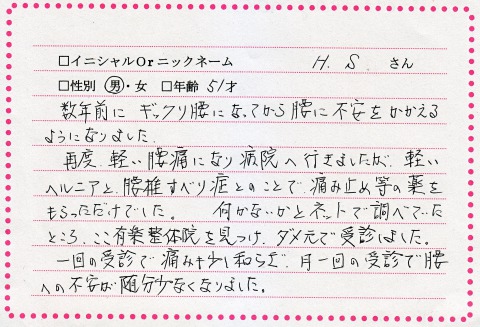 □イニシャルOrニックネーム H. S. さん
□性別 男・女 □年齢 51才
数年前に ギックリ腰になってから腰に不安をかかえる
ようになりました。
再度、軽い腰痛になり病院へ行きましたが、軽い
ヘルニアと、腰椎すべり症とのことで、痛み止め等の薬を
もらっただけでした。 何かないかとネットで調べていた
ところ、ここ有楽整体院を見つけ、ダメ元で受診しました。
一回の受診で痛みも少し和らぎ、月一回の受診で腰
への不安が随分少なくなりました。